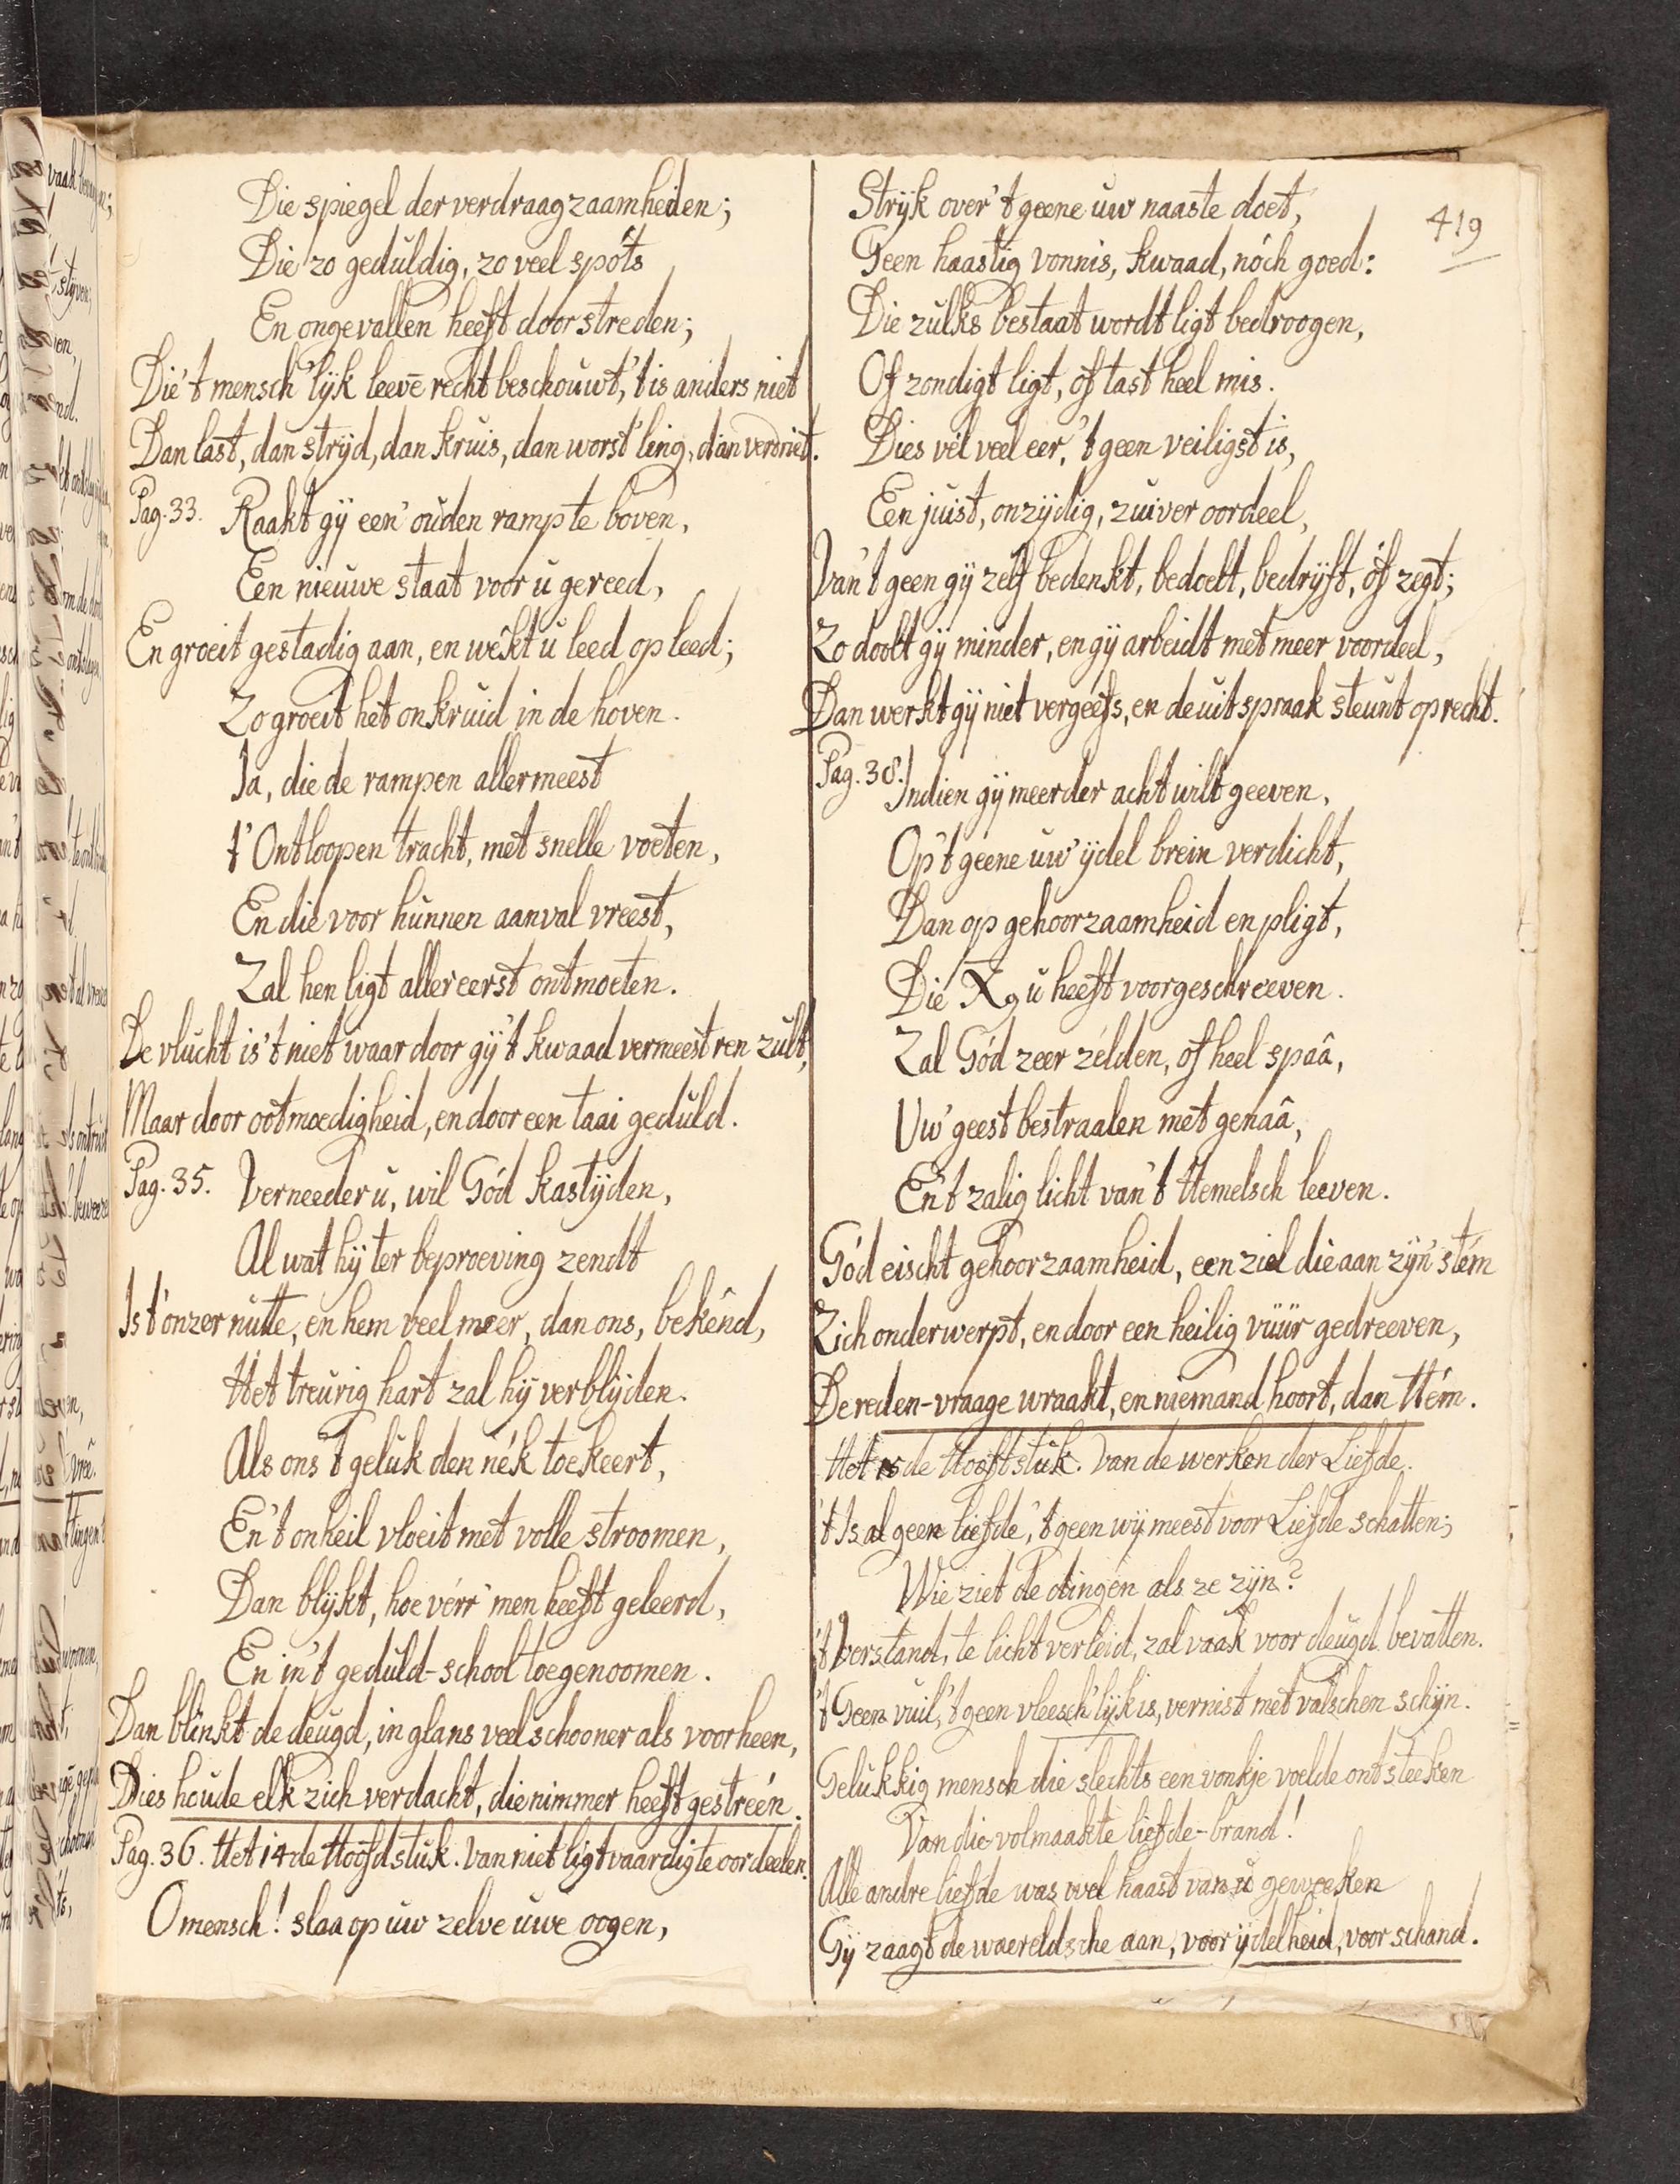 Die spiegel der verdraagzaamheiden;
Die zo geduldig, zo veel spóts
En ongevallen heeft doorstreden;
Die 't mensch'lÿk leevē recht beschouwt, 't is anders niet
Dan last, dan strÿd, dan kruis, dan worst'ling, dan verdriet.
Pag. 33. Raakt gÿ een' ouden ramp te boven,
Een nieuwe staat voor u gereed,
En groeit gestadig aan, en wékt u leed op leed;
Zo groeit het onkruid in de hoven.
Ja, die de rampen allermeest
t' Ontloopen tracht, met snelle voeten,
En die voor hunnen aanval vreest,
Zal hen ligt allereerst ontmoeten.
De vlucht is 't niet waar door gÿ 't kwaad vermeest'ren zult,
Maar door ootmoedigheid, en door een taai geduld.
Pag. 35. Verneeder u, wil Gód kastÿden,
Al wat hÿ ter beproeving zendt
Is t' onzer nutte, en hem veel meer, dan ons, bekênd,
Het treurig hart zal hÿ verblÿden.
Als ons 't geluk den nék toekeert,
En 't onheil vloeit met volle stroomen,
Dan blÿkt, hoe vérr' men heeft geleerd,
En in 't geduld-school toegenoomen.
Dan blinkt de deugd, in glans veel schooner als voorheen,
Dies houde elk zich verdacht, die nimmer heeft gestreên.
Pag. 36. Het 14de Hoofdstuk. Van niet ligtvaardig te oordeelen.
O mensch! slaa op uw zelve uwe oogen,
419
Strÿk over 't geene uw naaste doet,
Geen haastig vonnis, kwaad, nóch goed:
Die zulks bestaat wordt ligt bedroogen,
Of zondigt ligt, óf tast heel mis.
Dies vél veel eer, 't geen veiligst is,
Een juist, onzÿdig, zuiver oordeel,
Van 't geen gÿ zelf bedenkt, bedoelt, bedrÿft, óf zegt;
Zo doolt gÿ minder, en gÿ arbeidt met meer voordeel,
Dan werkt gÿ niet vergeefs, en de uitspraak steunt op recht.
Pag. 38. Indien gÿ meerder acht wilt geeven,
Op 't geene uw' ÿdel brein verdicht,
Dan op gehoorzaamheid en pligt,
Die X. u heeft voorgeschreeven.
Zal Gód zeer zélden, of heel spaâ,
Uw' geest bestraalen met genaâ,
En 't zalig licht van 't Hemelsch leeven.
Gód eischt gehoorzaamheid, een ziel die aan zÿn' stém
Zich onderwerpt, en door een heilig vüür gedreeven,
De reden-vraage wraakt, en niemand hoort, dan Hém.
Het 15de Hooftstuk. Van de werken der Liefde.
't Is al geen liefde, 't geen wÿ meest voor Liefde schatten;
Wie ziet de dingen als ze zÿn?
't Verstand, te licht verleid, zal vaak voor deugd bevatten.
't Geen vuil, 't geen vleesch'lÿk is, vernist met valschen schÿn.
Gelukkig mensch die slechts een vonkje voelde ontsteeken
Van die volmaakte liefde-brand!
Alle andre liefde was wel haast van u geweeken
Gÿ zaagt de waereldsche aan, voor ÿdelheid, voor schand.